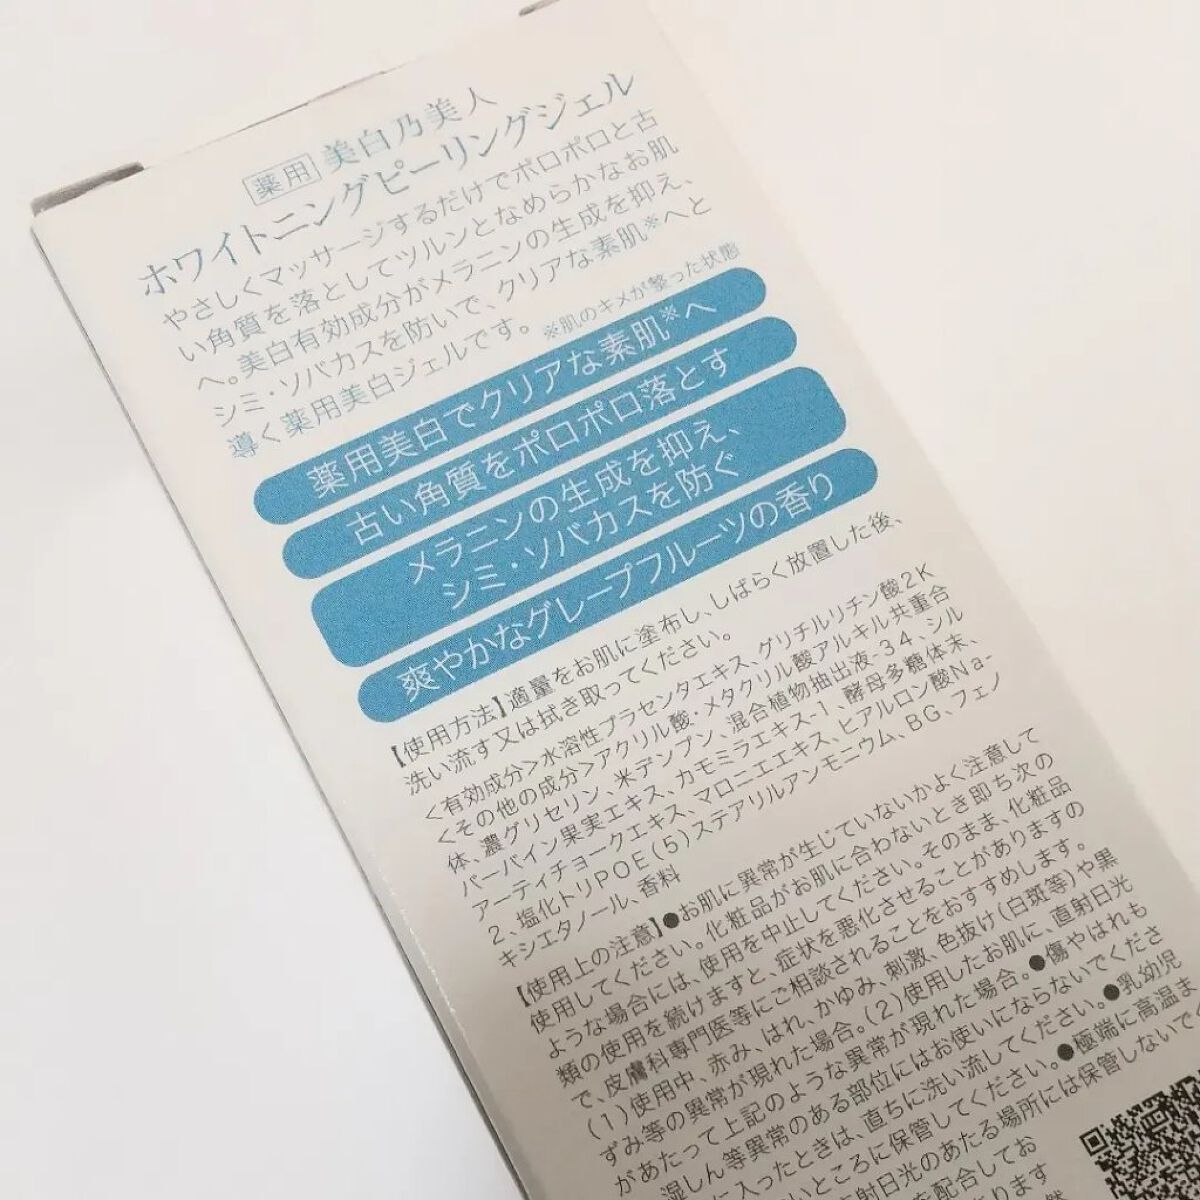 薬用 美白乃美人
ホワイトニングピーリングジェル
やさしくマッサージするだけでポロポロと古
い角質を落としてツルンとなめらかなお肌
へ。美白有効成分がメラニンの生成を抑え、
シミ・ソバカスを防いで、クリアな素肌※へと
導く薬用美白ジェルです。 ※肌のキメが整った状態
薬用美白でクリアな素肌※へ
古い角質をポロポロ落とす
メラニンの生成を抑え、
シミ・ソバカスを防ぐ
爽やかなグレープフルーツの香り
【使用方法】適量をお肌に塗布し、しばらく放置した後、
洗い流す又は拭き取ってください。
<有効成分>水溶性プラセンタエキス、グリチルリチン酸2K
<その他の成分>アクリル酸・メタクリル酸アルキル共重合
体、濃グリセリン、米デンプン、混合植物抽出液-34、シル
バーバイン果実エキス、カモミラエキス-1、酵母多糖体末、
アーティチョークエキス、マロニエエキス、ヒアルロン酸Na-
2、塩化トリPOE(5)ステアリルアンモニウム、BG、フェノ
キシエタノール、香料
【使用上の注意】●お肌に異常が生じていないかよく注意して
使用してください。化粧品がお肌に合わないとき即ち次の
ような場合には、使用を中止してください。そのまま、化粧品
類の使用を続けますと、症状を悪化させることがありますの
で、皮膚科専門医等にご相談されることをおすすめします。
(1)使用中、赤み、はれ、かゆみ、刺激、色抜け(白斑等)や黒
ずみ等の異常が現れた場合。(2)使用したお肌に、直射日光
があたって上記のような異常が現れた場合。●傷やはれも
湿しん等異常のある部位にはお使いにならないでくださ
に入ったときは、直ちに洗い流してください。●乳幼児
いところに保管してください。●極端に高温ま
射日光のあたる場所には保管しないで
を配合してお
ります